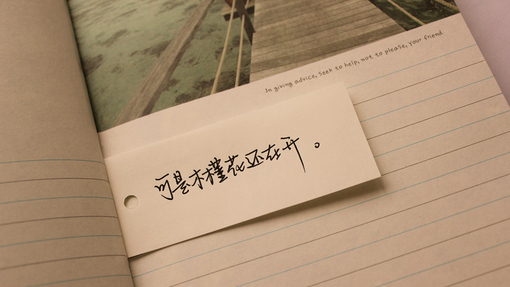 In giving advice, seek to help, not to please, your friend.
可是木槿花还在开。